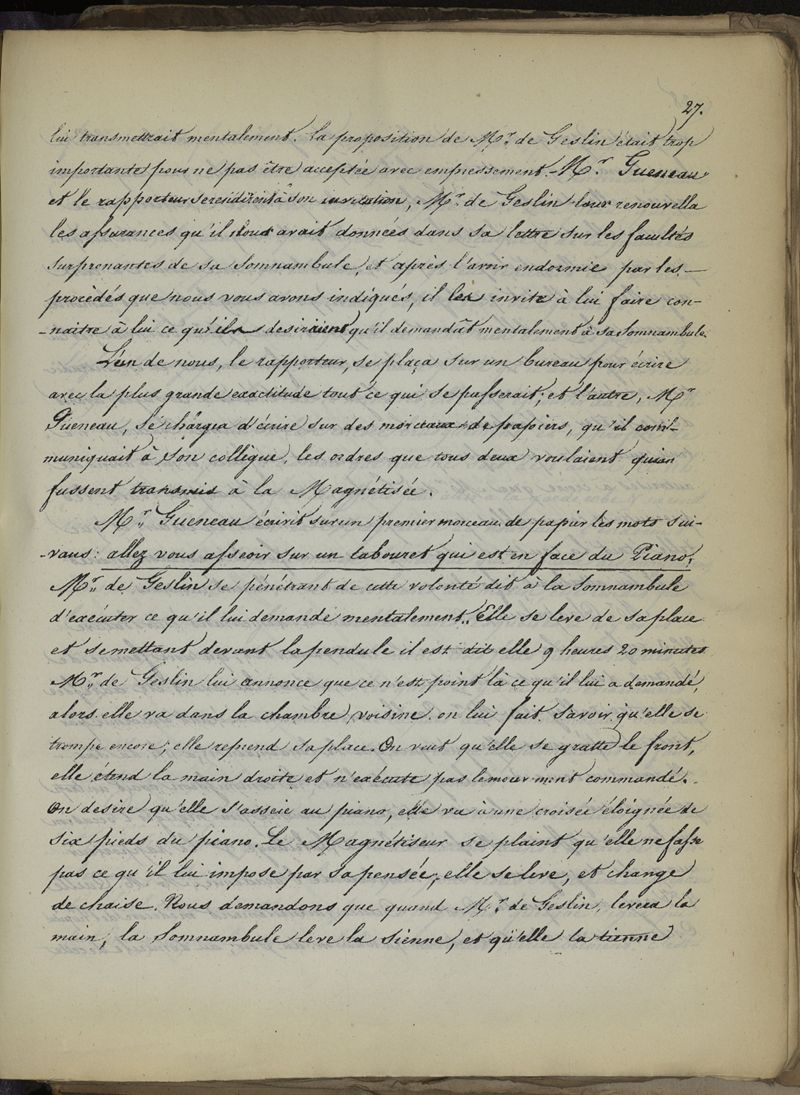 27.
lui transmettrait mentalement. La proposition de Mr. de Geslin était trop
importante pour ne pas être acceptée avec empressement. Mr. Gueneau
et le rapporteur se rendirent à son invitation, Mr. de Geslin leur renouvella
les assurances qu'il nous avait données dans sa lettre sur les facultés
surprenantes de sa Somnambule, et après l'avoir endormie par les —
procédés que nous vous avons indiqués, il les invite à lui faire con-
-naitre à lui ce qu'ils desiraient qu'il demandât mentalement à sa Somnambule.
L'un de nous, le rapporteur, se plaça sur un bureau pour écrire
avec la plus grande exactitude tout ce qui se passerait; et l'autre, Mr.
Gueneau, se chargea d'écrire sur des morceaux de papiers, qu'il com-
muniquait à son collègue, les ordres que tous deux voulaient qui
fussent transmis à la Magnétisée.
Mr. Gueneau écrivit sur un premier morceau de papier les mots sui-
-vans: allez vous asseoir sur un tabouret qui est en face du Piano;
Mr. de Geslin se pénétrant de cette volonté dit à la Somnambule
d'exécuter ce qu'il lui demande mentalement. Elle se leve de sa place
et se mettant devant la pendule il est dit elle 9 heures 20 minutes
Mr. de Geslin lui annonce que ce n'est point là ce qu'il lui a demandé,
alors elle va dans la chambre voisine. on lui fait savoir qu'elle se
trompe encore; elle reprend sa place. On veut qu'elle se gratte le front,
elle étend la main droite et n'exécute pas le mouvement commandé.
On desire qu'elle s'asseie au piano, elle va à une croisée éloignée de
six pieds du piano. Le Magnétiseur se plaint qu'elle ne fasse
pas ce qu'il lui impose par sa pensée, elle se leve, et change
de chaise. Nous demandons que quand Mr. de Geslin, levera la
main, la Somnambule leve la sienne, et qu'elle la tienne